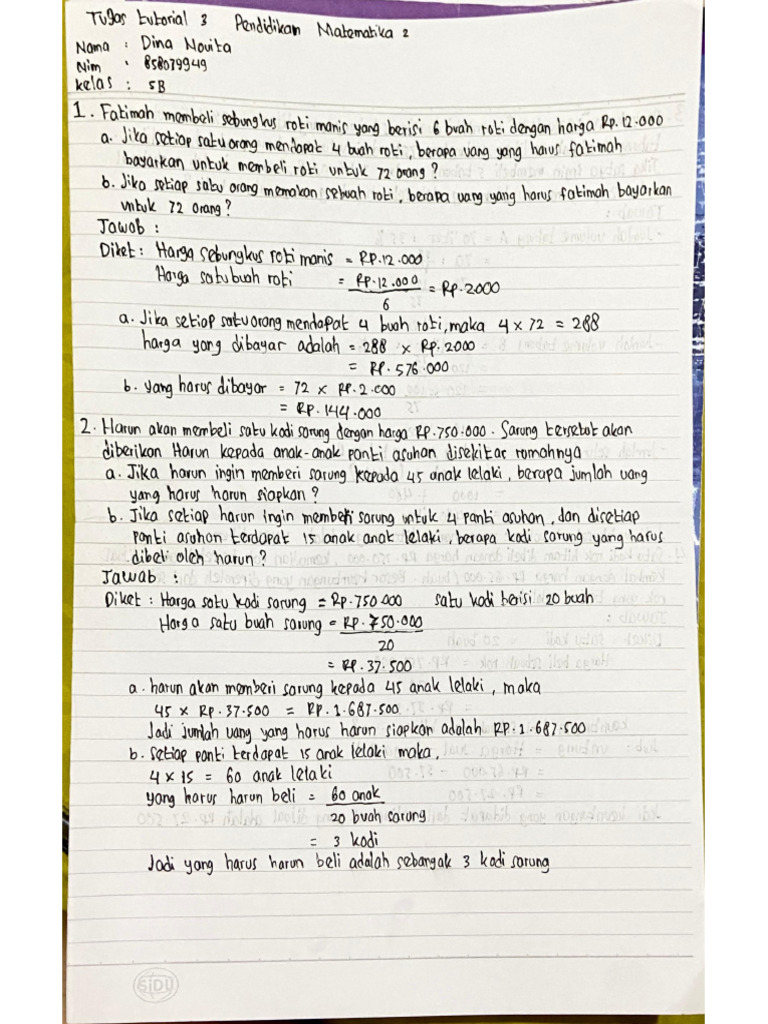 Tugas tutorial 3 Pendidikan Matematika 2
Nama : Dina Novita
Nim : 858079949
Kelas : 5B
1. Fatimah membeli sebungkus roti manis yang berisi 6 buah roti dengan harga Rp.12.000
a. Jika setiap satu orang mendapat 4 buah roti, berapa uang yang harus fatimah
bayarkan untuk membeli roti untuk 72 orang?
b. Jika setiap satu orang memakan sebuah roti, berapa uang yang harus fatimah bayarkan
untuk 72 orang?
Jawab :
Diket : Harga sebungkus roti manis = RP.12.000
Harga satu buah roti = Rp.12.000 = Rp.2000
6
a. Jika setiap satu orang mendapat 4 buah roti, maka 4 x 72 = 288
harga yang dibayar adalah = 288 x Rp.2000
= Rp. 576.000
b. yang harus dibayar = 72 x Rp.2.000
= Rp.144.000
2. Harun akan membeli satu kodi sarung dengan harga Rp.750.000. Sarung tersebut akan
diberikan Harun kepada anak-anak panti asuhan disekitar romahnya
a. Jika harun ingin memberi sarung kepada 45 anak lelaki, berapa jumlah uang
yang harus harun siapkan?
b. Jika setiap harun ingin memberi sarung untuk 4 panti asuhan, dan disetiap
panti asuhan terdapat 15 anak anak lelaki, berapa kodi sarung yang harus
dibeli oleh harun?
Jawab :
Diket : Harga satu kodi sarung = Rp.750.000 satu kodi berisi 20 buah
Harga satu buah sarung = Rp.750.000
20
= Rp.37.500
a. harun akan memberi sarung kepada 45 anak lelaki, maka
45 x Rp.37.500 = Rp.1.687.500
Jadi jumlah uang yang harus harun siapkan adalah RP.1.687.500
b. setiap panti terdapat 15 anak lelaki maka,
4 x 15 = 60 anak lelaki
yang harus harun beli = 60 anak
20 buah sarung
= 3 kodi
Jadi yang harus harun beli adalah sebanyak 3 kodi sarung
SIDU